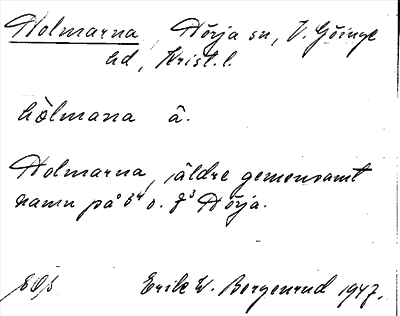 Holmarna, Dörja sn, V. Göinge
hd, Krist. l.
hòlmana â.
Holmarna, äldre gemensamt
namn på 3⁴ o. 7³ Dörja.
Erik W. Borgenrud 1947.